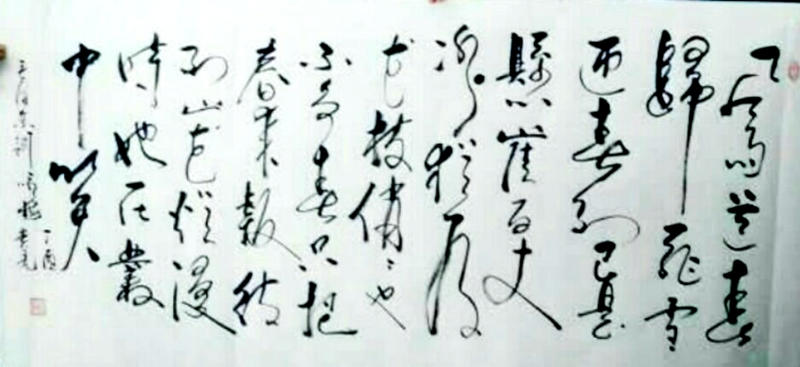 風雨送春
歸飛雪
迎春到已是
懸崖百丈
冰猶有
花枝俏俏也
不爭春只把
春來報待
到山花爛漫
時她在叢
中笑
毛泽东词咏梅
丁酉